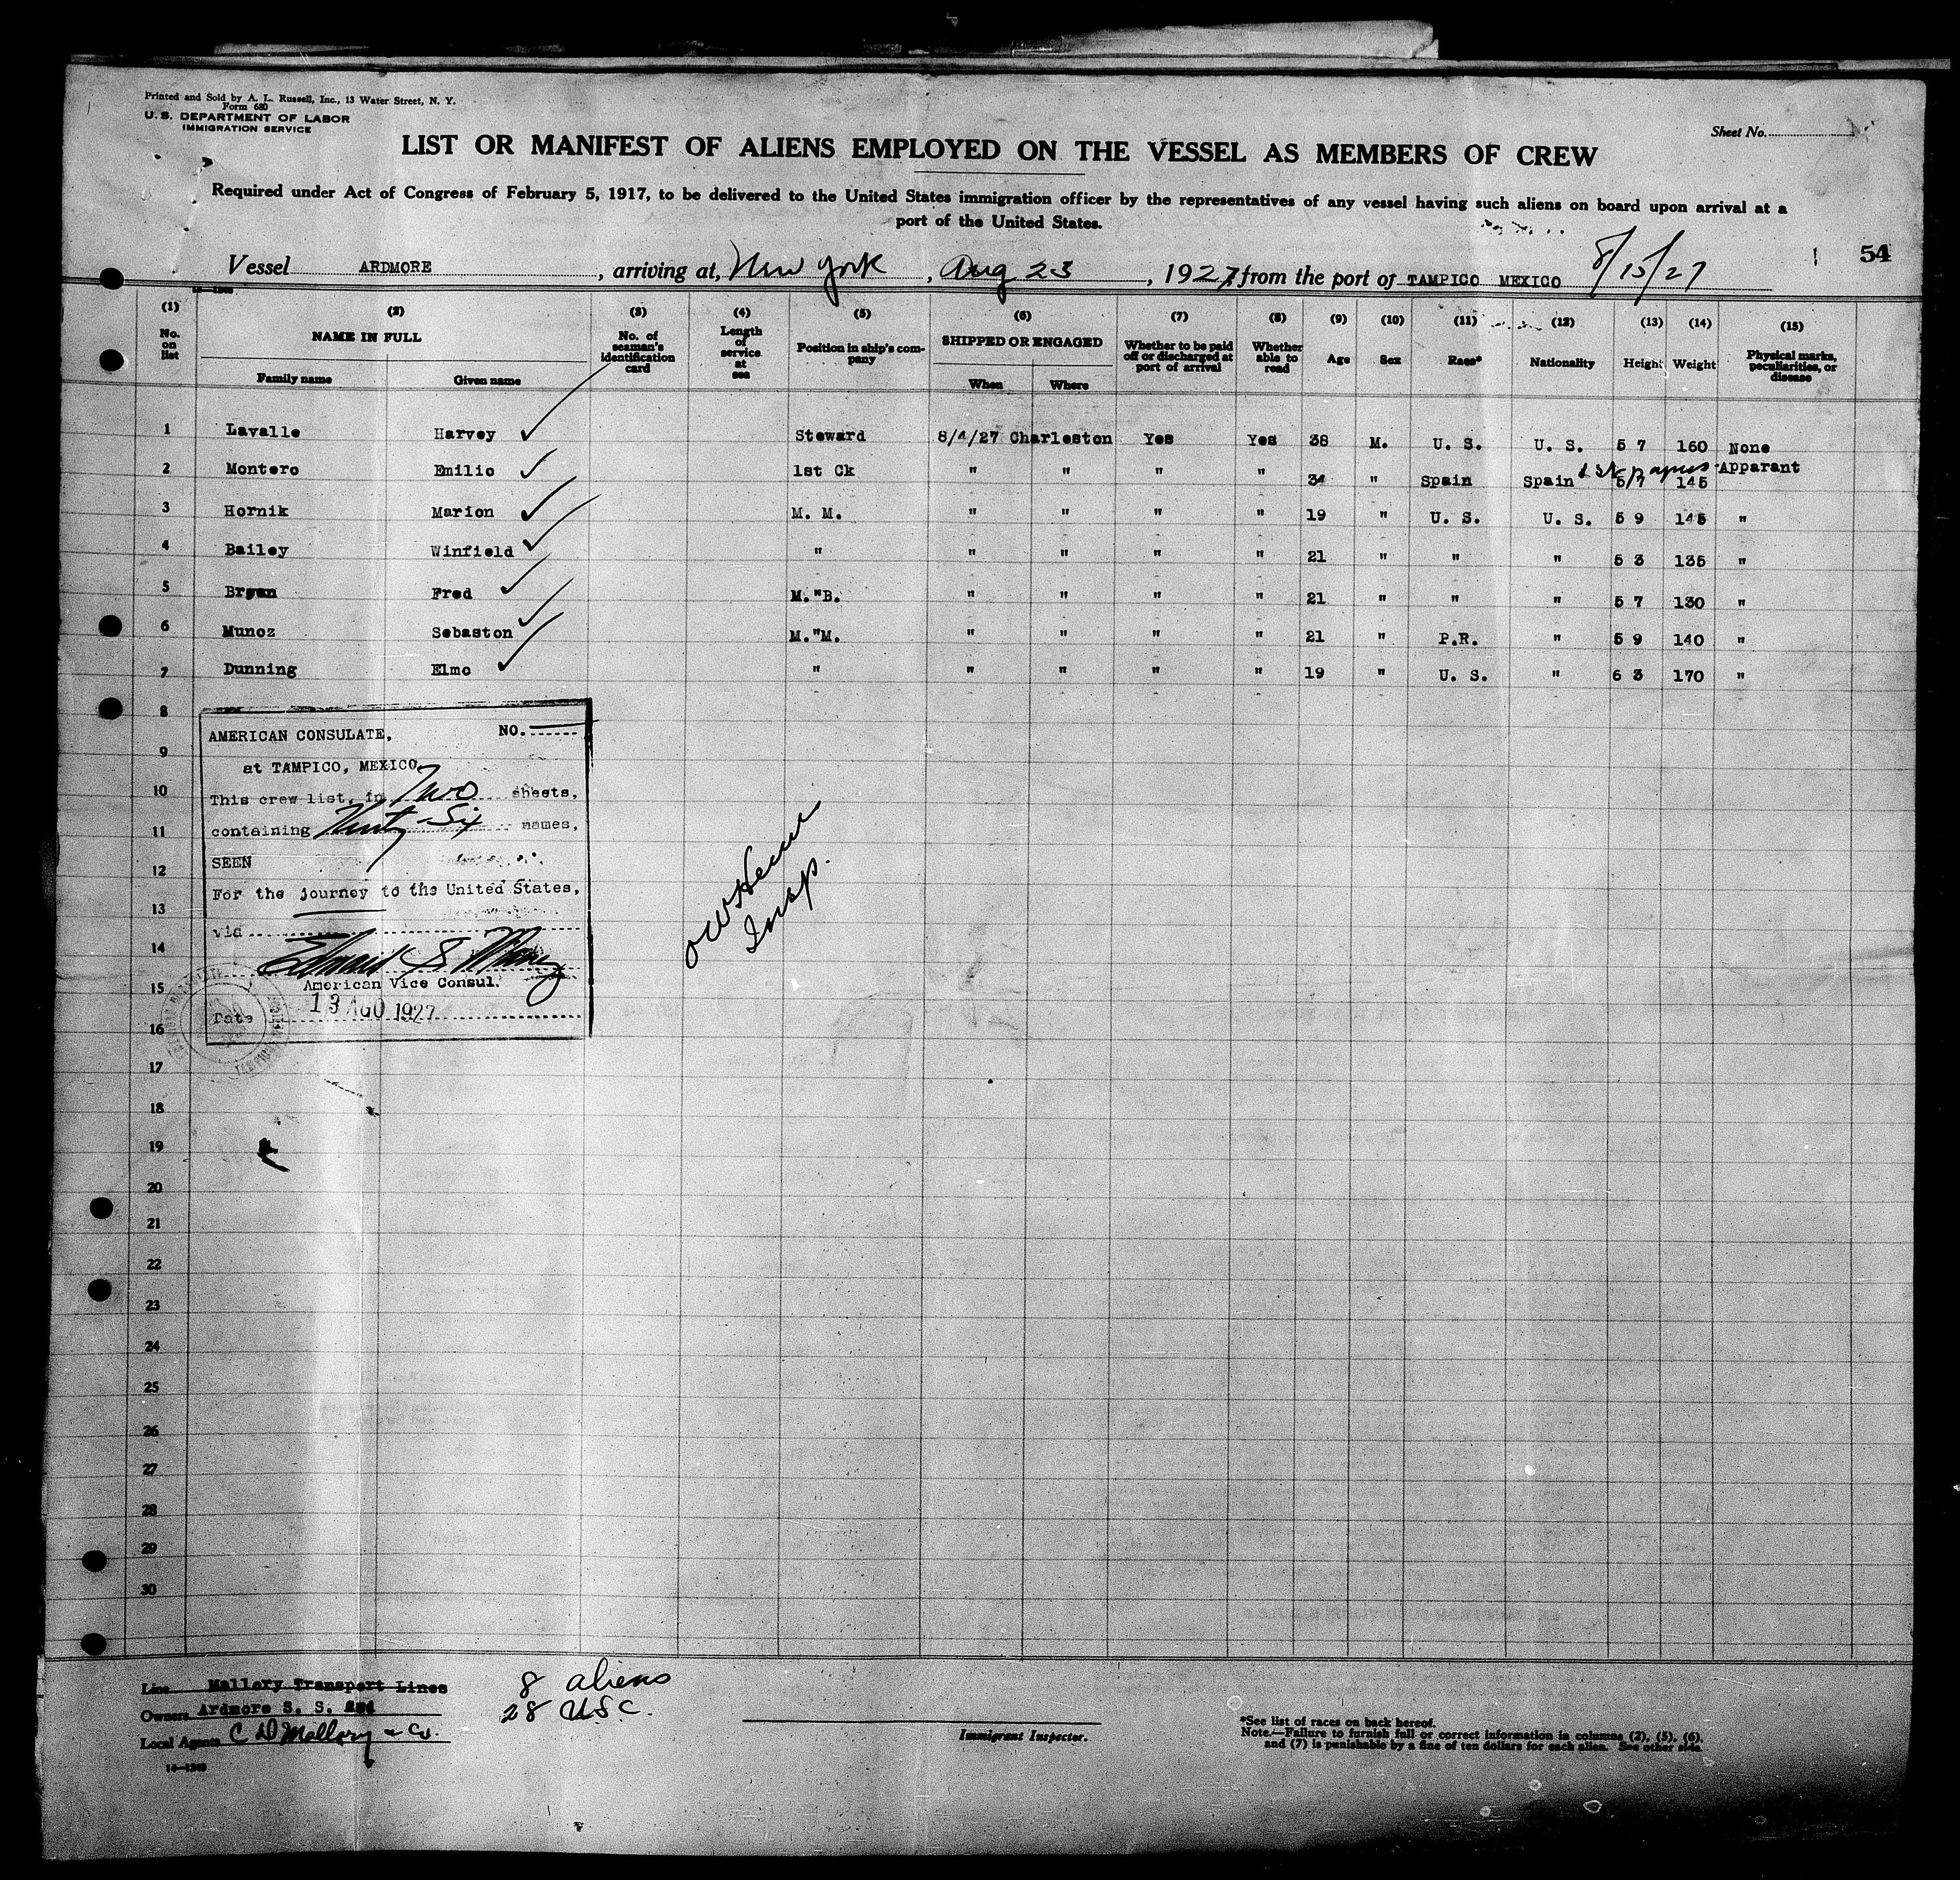 Printed and Sold by A. L. Russell, Inc., 13 Water Street, N. Y.
Form 680
U. S. DEPARTMENT OF LABOR
IMMIGRATION SERVICE
Sheet No.
LIST OR MANIFEST OF ALIENS EMPLOYED ON THE VESSEL AS MEMBERS OF CREW
Required under Act of Congress of February 5, 1917, to be delivered to the United States immigration officer by the representatives of any vessel having such aliens on board upon arrival at a
port of the United States.
54
Vessel ARDMORE, arriving at, New York, Aug 23, 1927, from the port of TAMPICO MEXICO 8/15/27
(1) (2) (3) (4) (5) (6) (7) (8) (9) (10) (11) (12) (13) (14) (15)
No. on list
NAME IN FULL
Family name Given name
No. of seaman's identification card
Length of service at sea
Position in ship's company
SHIPPED OR ENGAGED
When Where
Whether to be paid off or discharged at port of arrival
Whether able to read
Age Sex Race* Nationality Height Weight
Physical marks, peculiarities, or disease
1 Lavalle Harvey Steward 8/4/27 Charleston Yes Yes 38 M. U. S. U. S. 5 7 160 None
2 Montero Emilio 1st Ck " " " " 34 " Spain Spain 1st papers 5/7 145 Apparant
3 Hornik Marion M. M. " " " " 19 " U. S. U. S. 5 9 145 "
4 Bailey Winfield " " " " " 21 " " " 5 3 135 "
5 Bryan Fred M."B. " " " " 21 " " " 5 7 130 "
6 Munoz Sebaston M."M. " " " " 21 " P.R. " 5 9 140 "
7 Dunning Elmo " " " " " 19 " U. S. " 6 3 170 "
8
9
10
11
12
13
14
15
16
17
18
19
20
21
22
23
24
25
26
27
28
29
30
AMERICAN CONSULATE, NO.
at TAMPICO, MEXICO
This crew list, in Two sheets,
containing Thirty-Six names,
SEEN
For the journey to the United States,
via
American Vice Consul.
Date 13 AGO 1927
Insp.
Line Mallory Transport Lines
Owners Ardmore S. S.
Local Agents C D Mallory & Co.
14—1240
8 aliens
28 U.S.C.
Immigrant Inspector.
*See list of races on back hereof.
Note.—Failure to furnish full or correct information in columns (2), (5), (6),
and (7) is punishable by a fine of ten dollars for each alien. See other side.